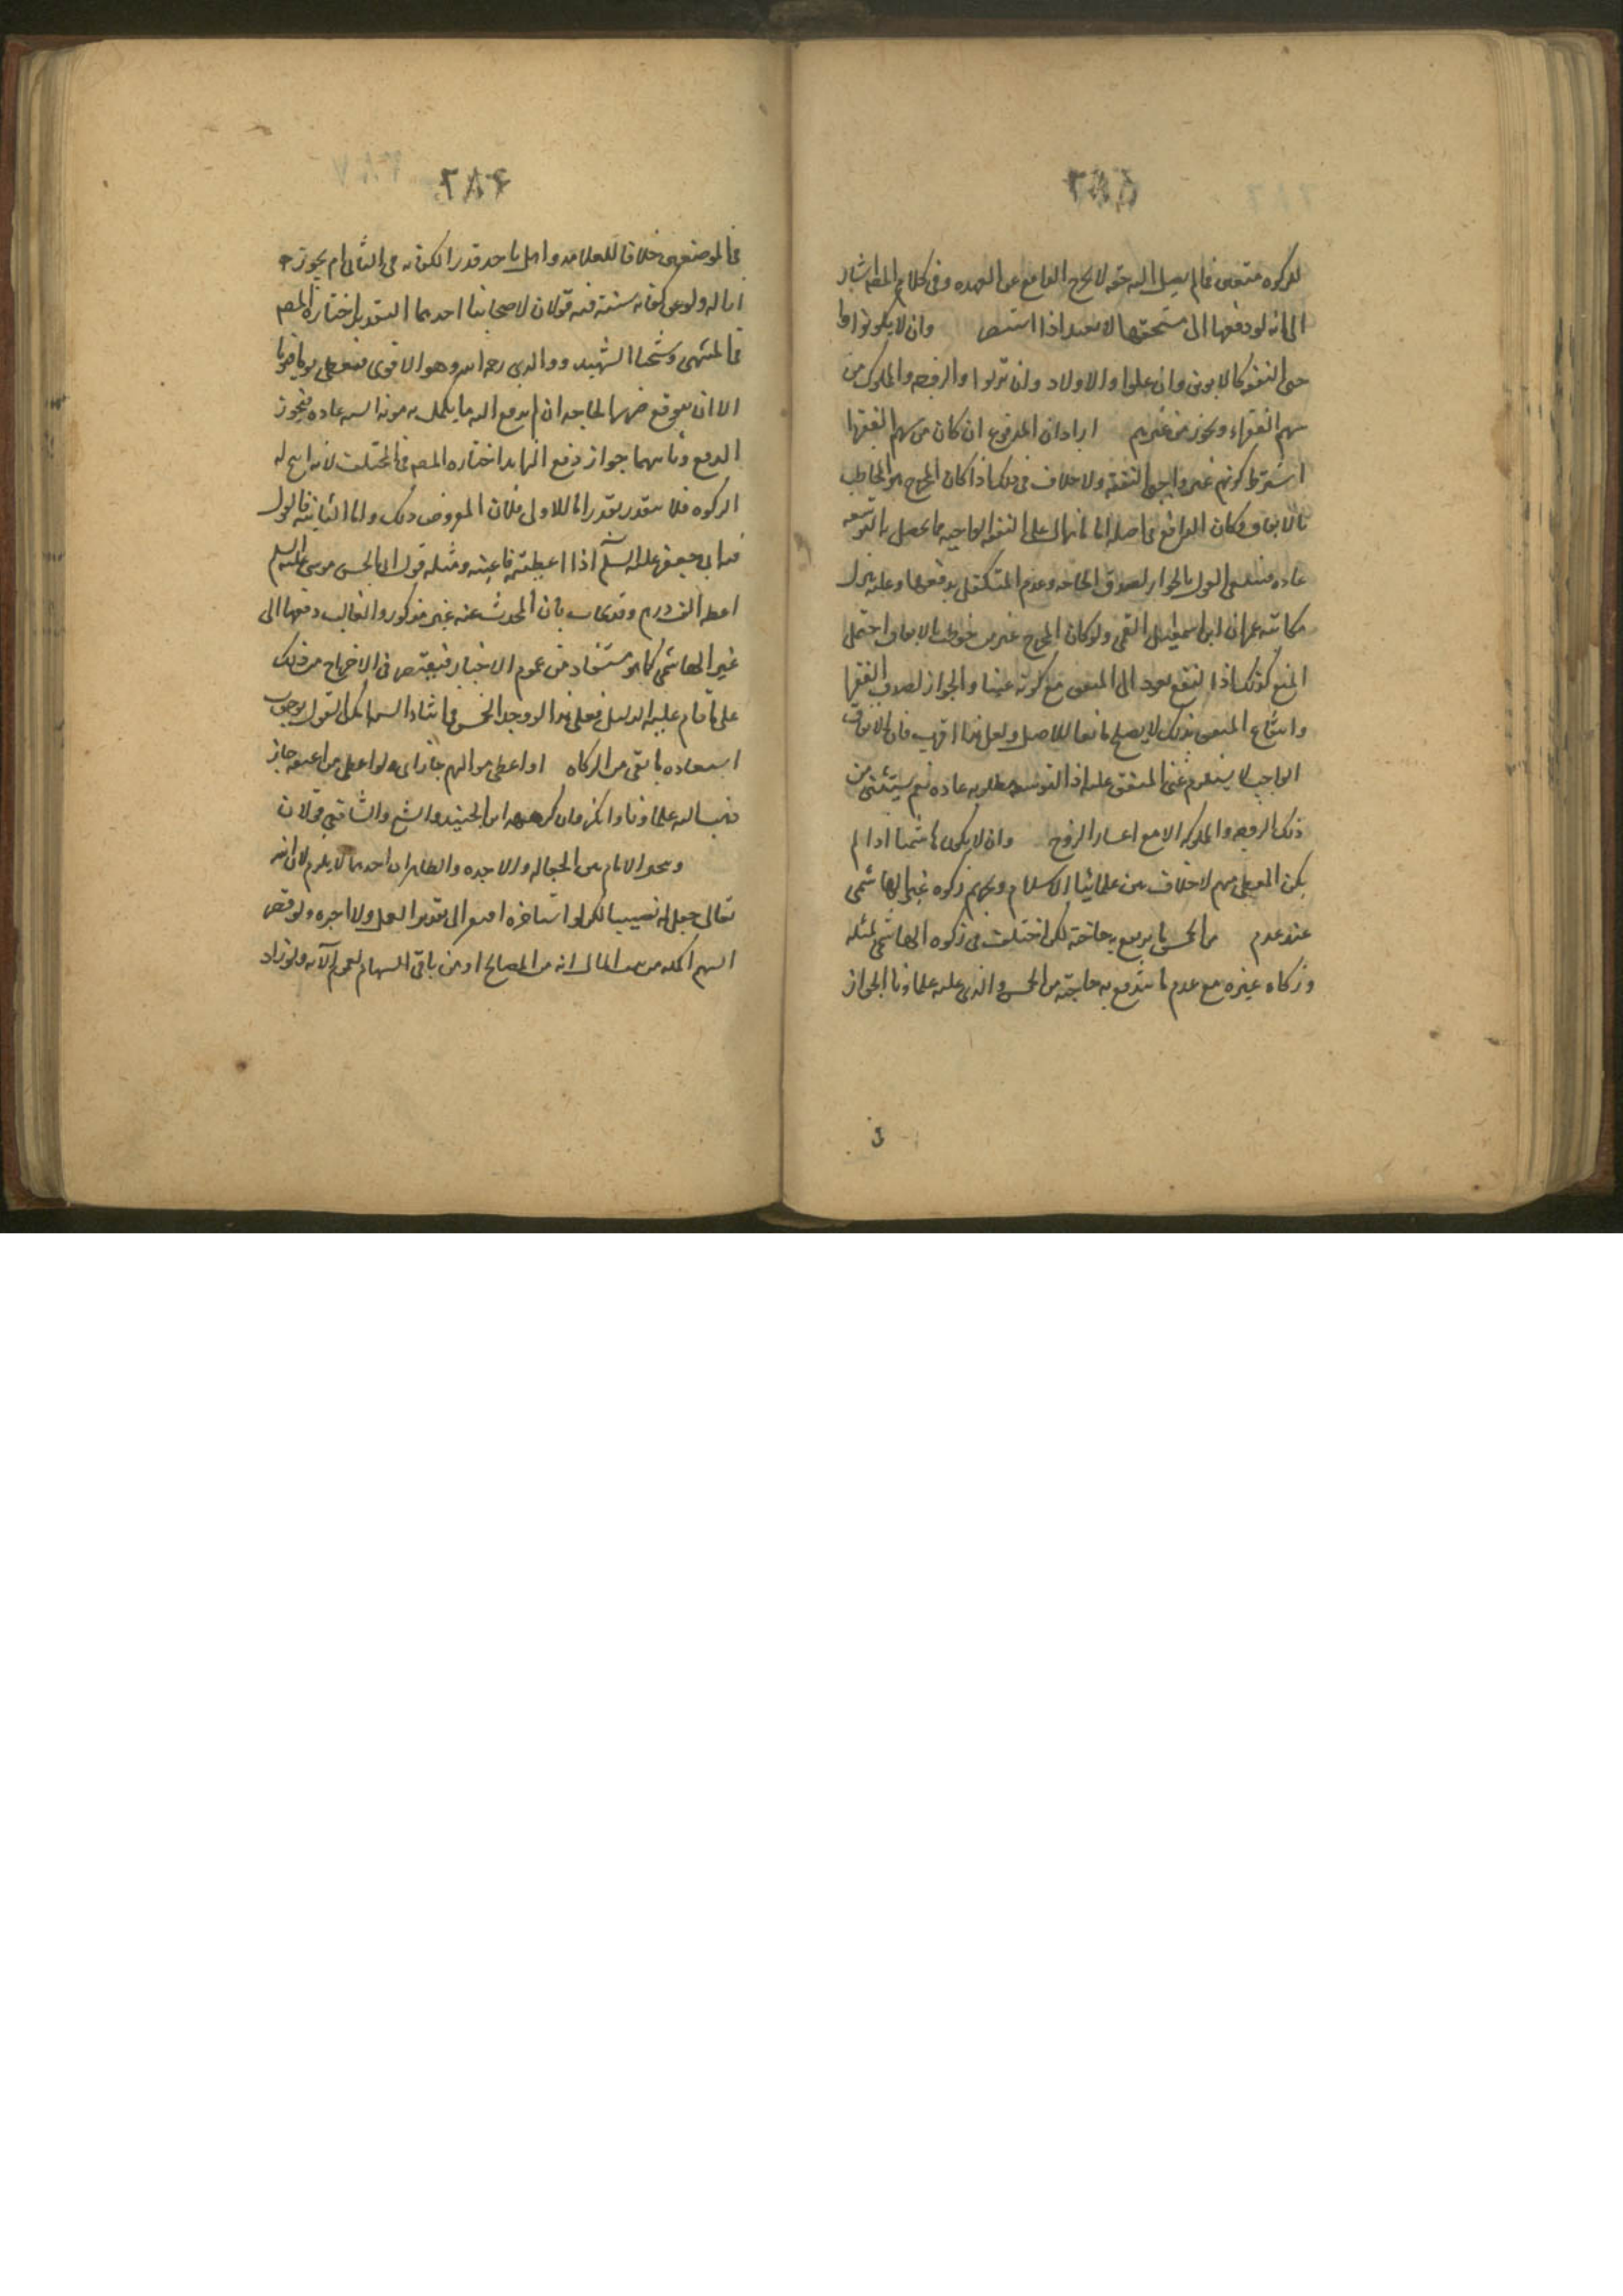 ٢٨٥
للزكوه متعين فما لم يصل اليه حقه لا يخرج الدافع عن العهده وفى كلام المصه اشار
الى انه لو دفعها الى مستحقها لا يعيد اذا استبصر وان لا يكونوا وا
جبى النفقه كالابوين وان علوا والاولاد وان نزلوا والزوجه والمملوك من
سهم الفقراء ويجوز من غيرهم اراد ان المدفوع ان كان من سهم الفقرا
اشترط كونهم غير واجبى النفقه ولا خلاف فى ذلك اذا كان المخرج هو المخاطب
بالانفاق وكان الدافع فاضله اما على النفقه الواجبه مما يحصل به التوسعه
عاده فينبغى القول بالجواز لصدق الحاجه وعدم المتكفل بدفعها وعليه ينزل
مكاتبه عمران ابن اسمعيل القمى ولو كان المخرج غير من خوطب بالانفاق احتمل
المنع كذلك اذا النفع يعود الى المنفق مع كونه غنيا والجواز لصدق الفقرا
وانتفاع المنفق بذلك لا يصلح مانعا للاصل ولعل هذا اقرب فان الانفاق
الواجب لا يستلزم غنى المنفق عليه اذ التوسعه مطلوبه عاده نعم يستثنى من
ذلك الزوجه والمملوكه الا مع اعسار الزوج وان لا يكون هاشميا اذا لم
يكن المعطى منهم لا خلاف بين علمائنا الاسلام وتحريم زكوه غير الهاشمى
عند عدم من الخمس ما يرفع به حاجته لكن اختلف فى زكوه الهاشمى لمثله
وزكاه غيره مع عدم ما تندفع به حاجته من الخمس والذى عليه علماؤنا الجواز
٢٨٦
فى الموضعين خلافا للعلامه وهل ياخذ قدر الكفايه فى الثانى ام يجوز
اماله ولو عن كفايه سنته فيه قولان لاصحابنا احدهما التقدير اختاره المصه
فى المنتهى وشيخنا الشهيد ووالدى رحمه الله وهو الاقوى فيعطى يوما فيوما
الا ان يتوقع ضررها الحاجه ان لم يدفع اليه ما يكمل به مونه السنه عاده فيجوز
الدفع وثانيهما جواز دفع الزايد اختاره المصه فى المختلف لانه ابيح له
الزكوه فلا يتقدر بقدر اما الاولى فلان المفروض ذلك واما الثانيه فالقول
ابى جعفر عليه السلام اذا اعطيته فاغنه ومثله قول ابى الحسن موسى عليه السلم
اعطه الف درهم وقد يجاب بان المحدث عنه غير مذكور والغالب دفعها الى
غير الهاشمى كما هو مستفاد من عموم الاخبار فيقتصر فى الاخراج من ذلك
على ما قام عليه الدليل فعلى هذا لو وجد الخمس فى اثناء السنه امكن القول بوجوب
استعاده ما بقى من الزكاه او اعطى مواليهم جاز اى ولو اعطى من اعتقه جاز
ذهب اليه علماؤنا واكثر وان كرهه ابن الجنيد والشيخ والشافعى قولان
ويتخير الامام بين الجعاله والاجره والظاهر ان احدهما لا يلزم لان الله
تعالى جعل له نصيبا لكن لو استاجره افتقر الى تقدير العمل والاجره ولو نقص
السهم اكمله من بيت المال لانه من المصالح او من باقى السهام لعموم الآيه ولو زاد